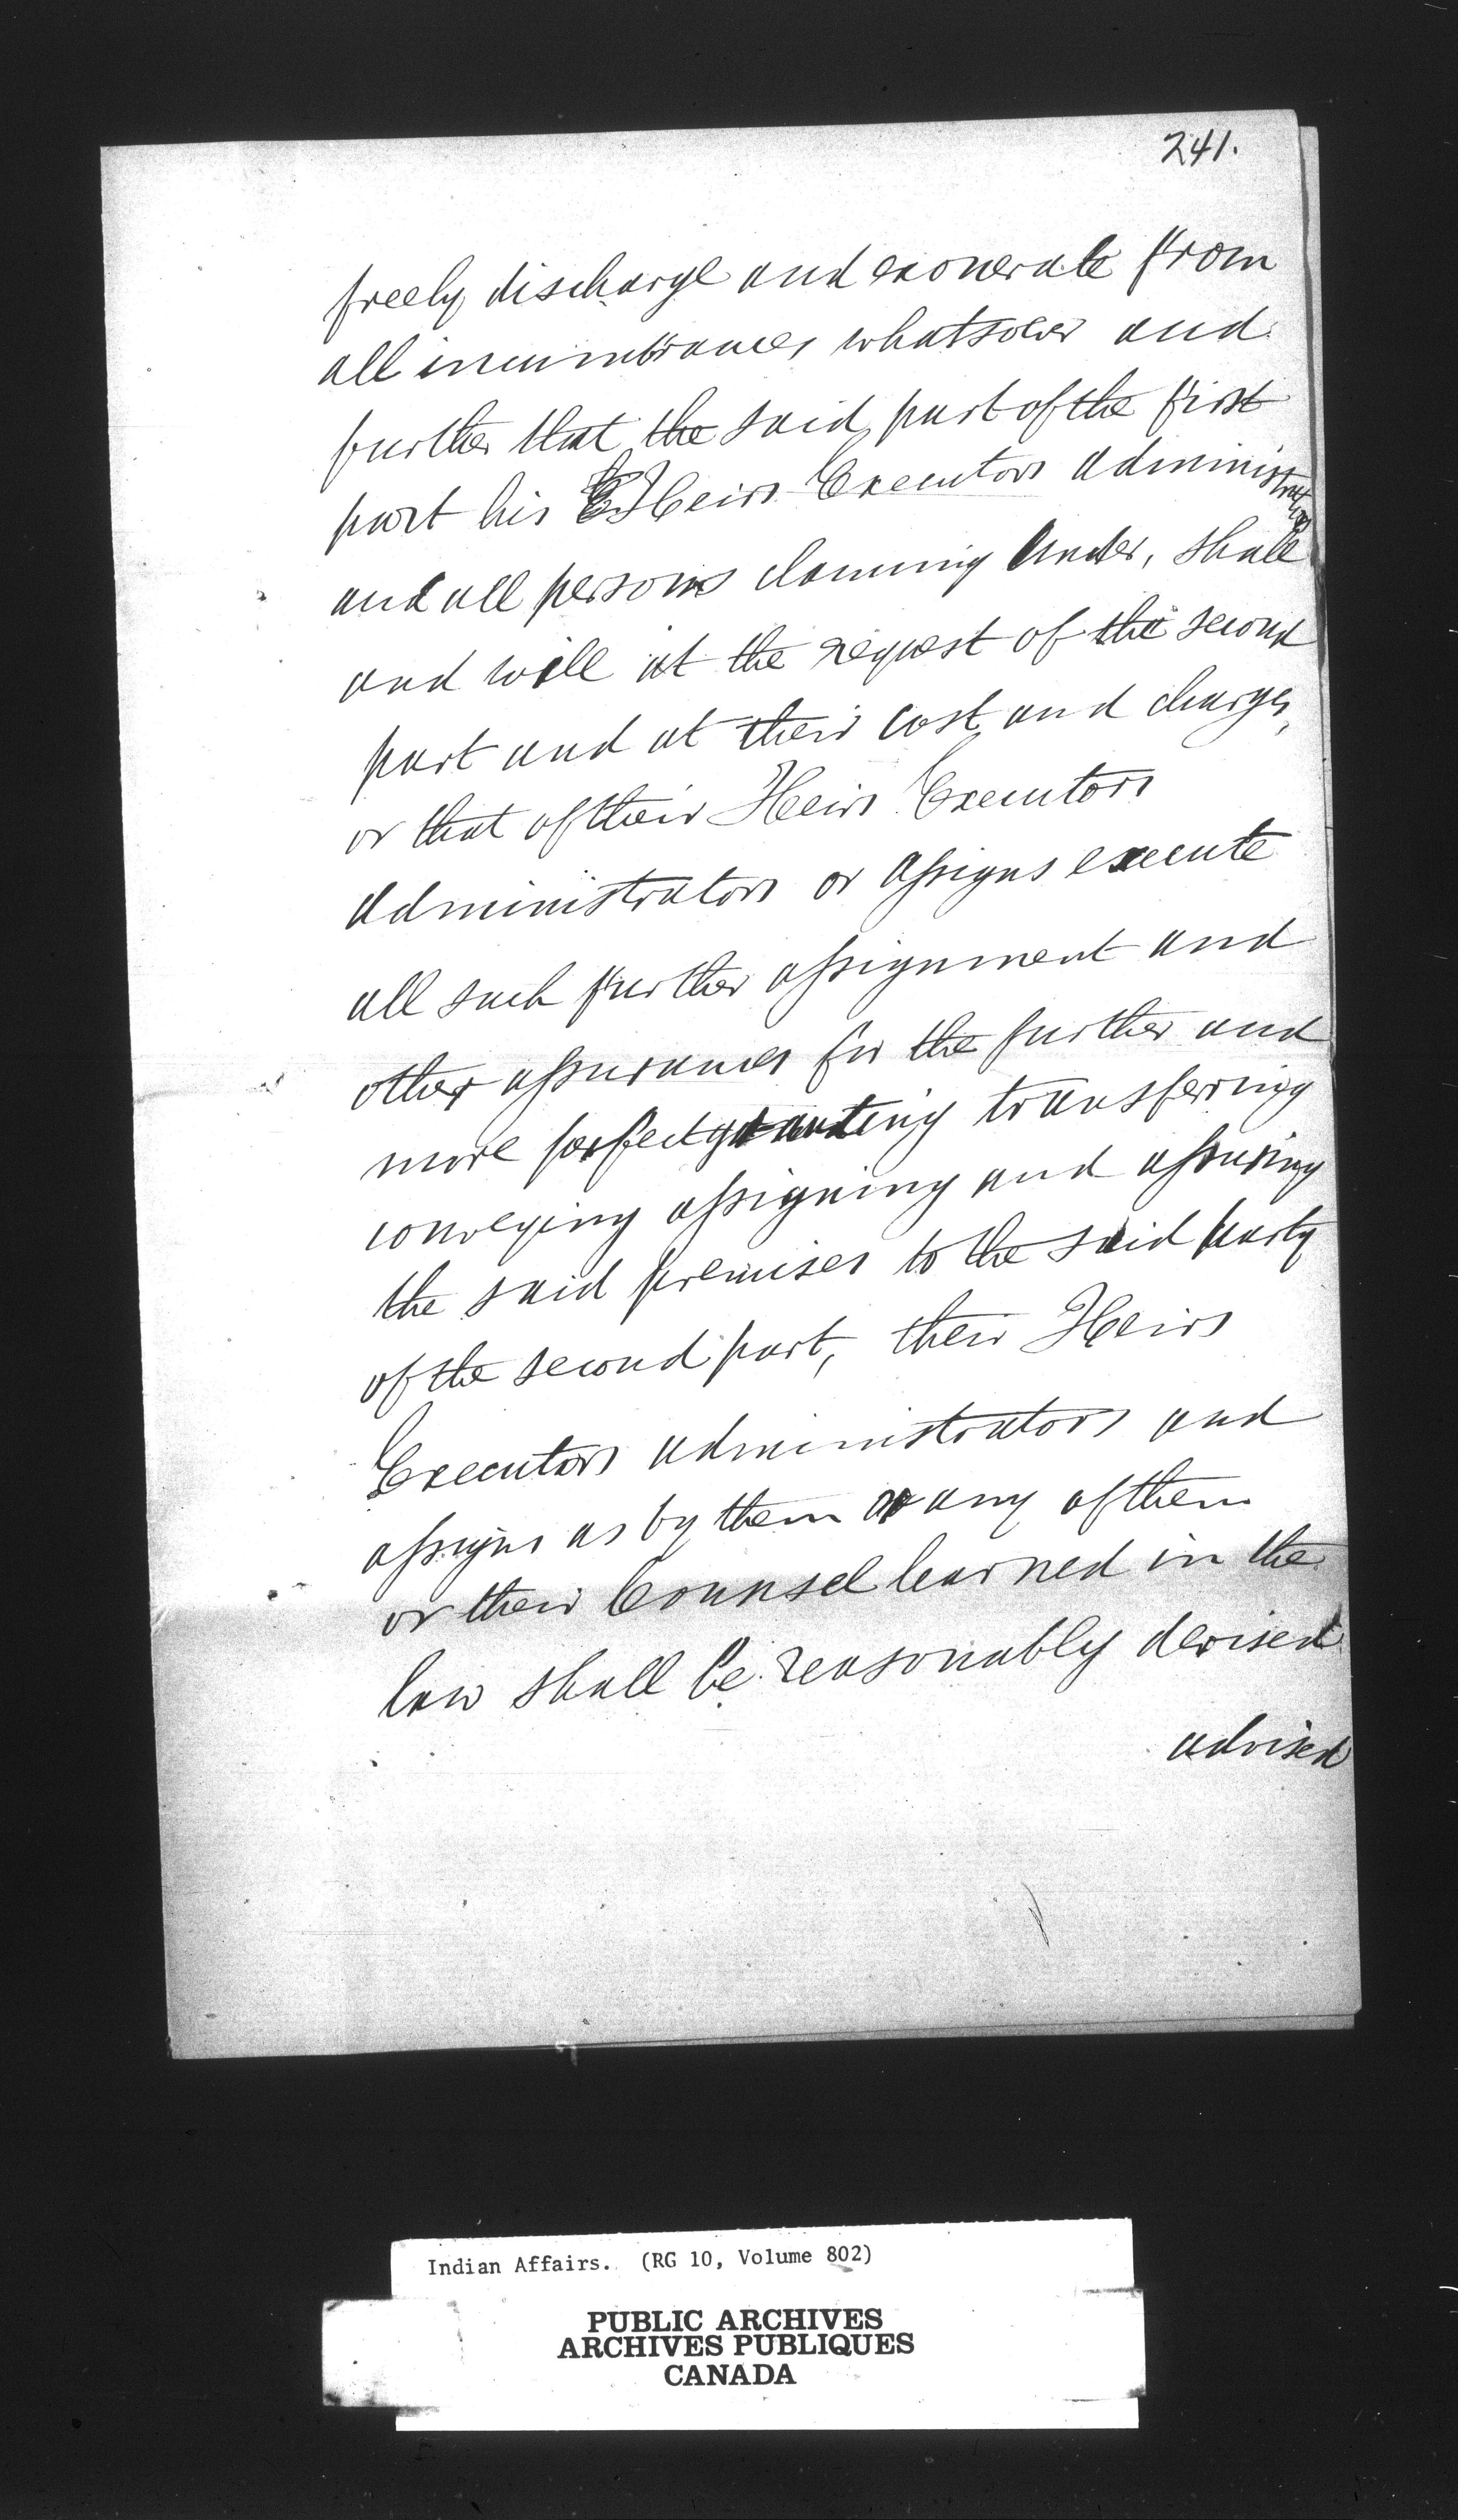 241.
freely discharge and exonerate from
all incumbrances whatsoever and
further that the said part of the first
part his Heirs Executors administrators
and all persons claiming under, shall
and will at the request of the second
part and at their cost and charges,
or that of their Heirs Executors
administrators or assigns execute
all such further assignment and
other assurances for the further and
more perfect granting transferring
conveying assigning and assuring
the said premises to the said party
of the second part, their Heirs
Executors administrators and
assigns as by them or any of them
or their Counsel learned in the
law shall be reasonably devised
advised
Indian Affairs. (RG 10, Volume 802)
PUBLIC ARCHIVES
ARCHIVES PUBLIQUES
CANADA